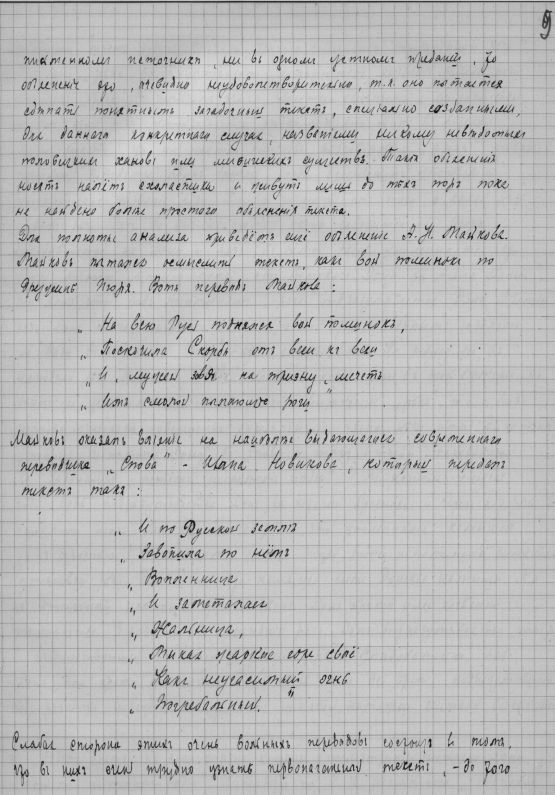 9
письменномъ источникѣ, ни въ одномъ устномъ преданіи, то
объясненіе это, очевидно неудовлетворительно, т.к. оно пытается
сдѣлать понятнымъ загадочный текстъ, спеціально созданными,
для даннаго конкретнаго случая, названіями никому невѣдомыхъ
половецкихъ хановъ или миѳическихъ существъ. Такія объясненія
носятъ налётъ схоластики и живутъ лишь до тѣхъ поръ пока
не найдено болѣе простого объясненія текста.
Для полноты анализа приведёмъ ещё объясненіе А. Н. Майкова.
Майковъ пытался осмыслить текстъ, какъ вой поминокъ по
дружинѣ Игоря. Вотъ переводъ Майкова:
„ На всю Русь поднялся вой поминокъ,
„ Поскочила Скорбь отъ веси къ веси
„ И, мужей зовя на тризну, мечетъ
„ Имъ смолой пылающіе роги "
Майковъ оказалъ вліяніе на наиболѣе выдающагося современнаго
переводчика „Слова" - Ивана Новикова, который передалъ
текстъ такъ:
„ И по Русской землѣ
„ Завопила по нёмъ
„ Вопленница
„ И заметалась
„ Жальница,
„ Мыкая жаркое горе своё
„ Какъ неугасимый огнь
„ Погребальный. "
Слабая сторона этихъ очень вольныхъ переводовъ состоитъ въ томъ,
что въ нихъ очень трудно узнать первоначальный текстъ, - до того